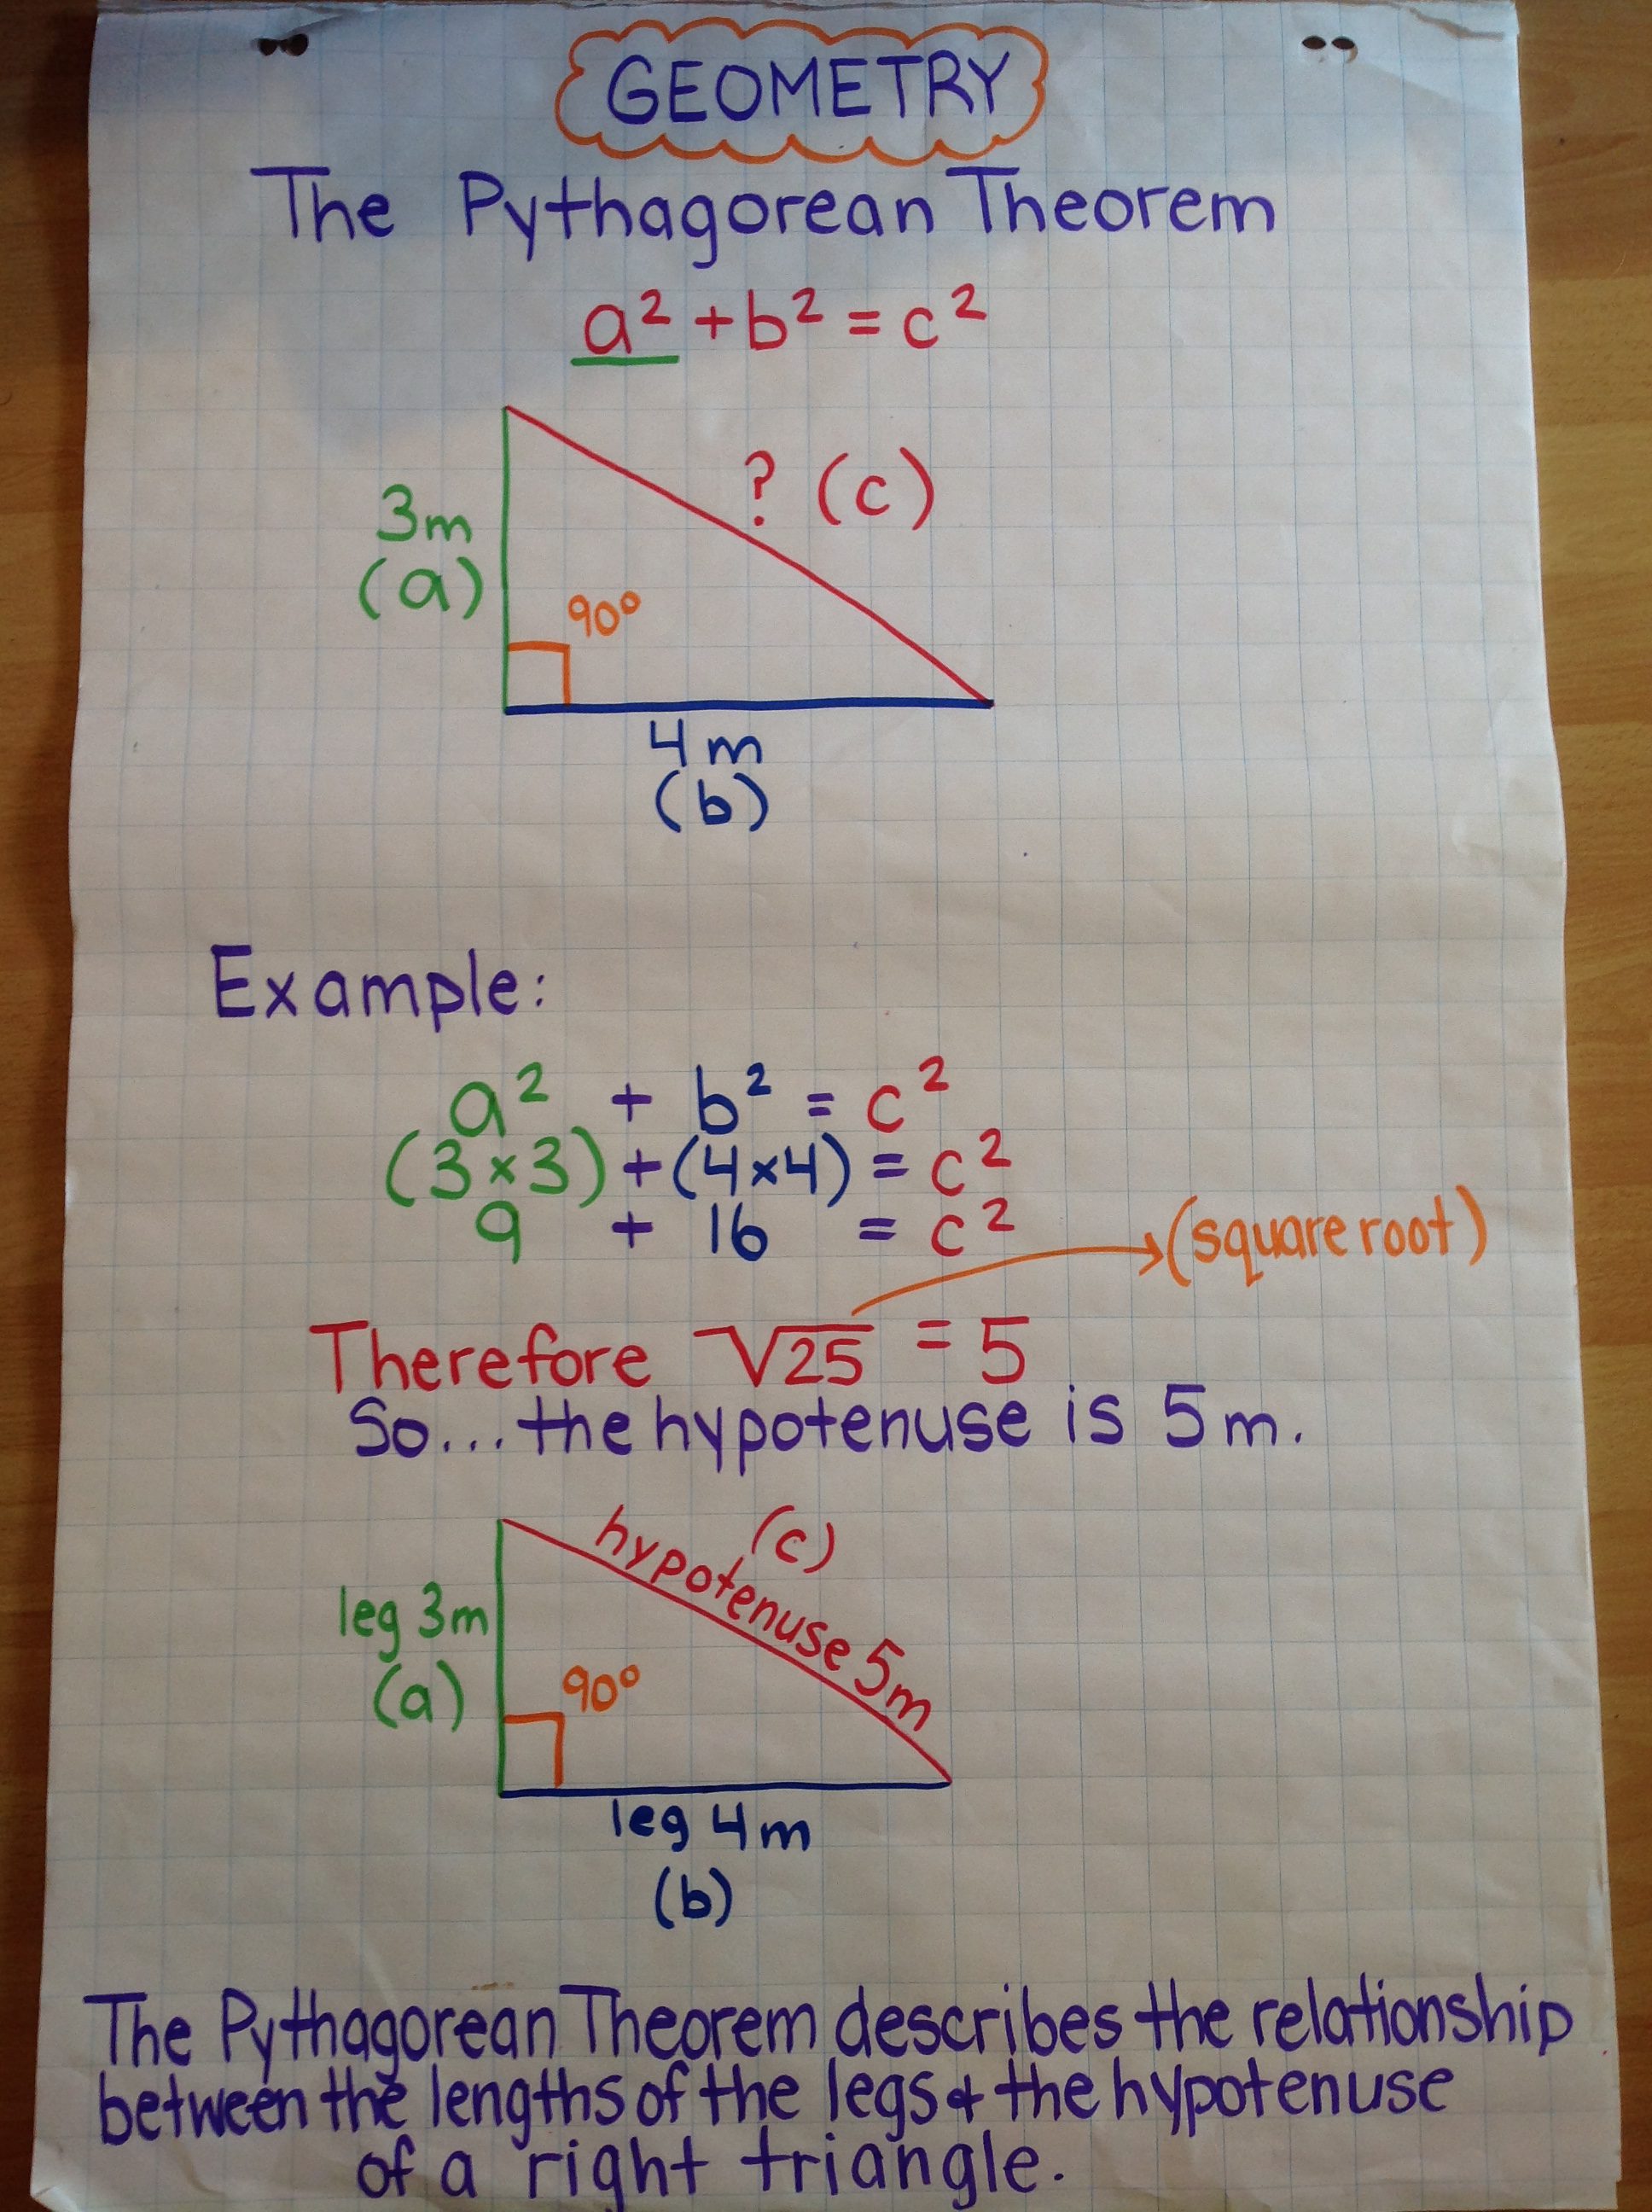 GEOMETRY
The Pythagorean Theorem
a² + b² = c²
? (c)
3m
(a)
90°
4m
(b)
Example:
a² + b² = c²
(3×3) + (4×4) = c²
9 + 16 = c²
(square root)
Therefore √25 = 5
So... the hypotenuse is 5m.
(c)
hypotenuse 5m
leg 3m
(a)
90°
leg 4m
(b)
The Pythagorean Theorem describes the relationship
between the lengths of the legs & the hypotenuse
of a right triangle.